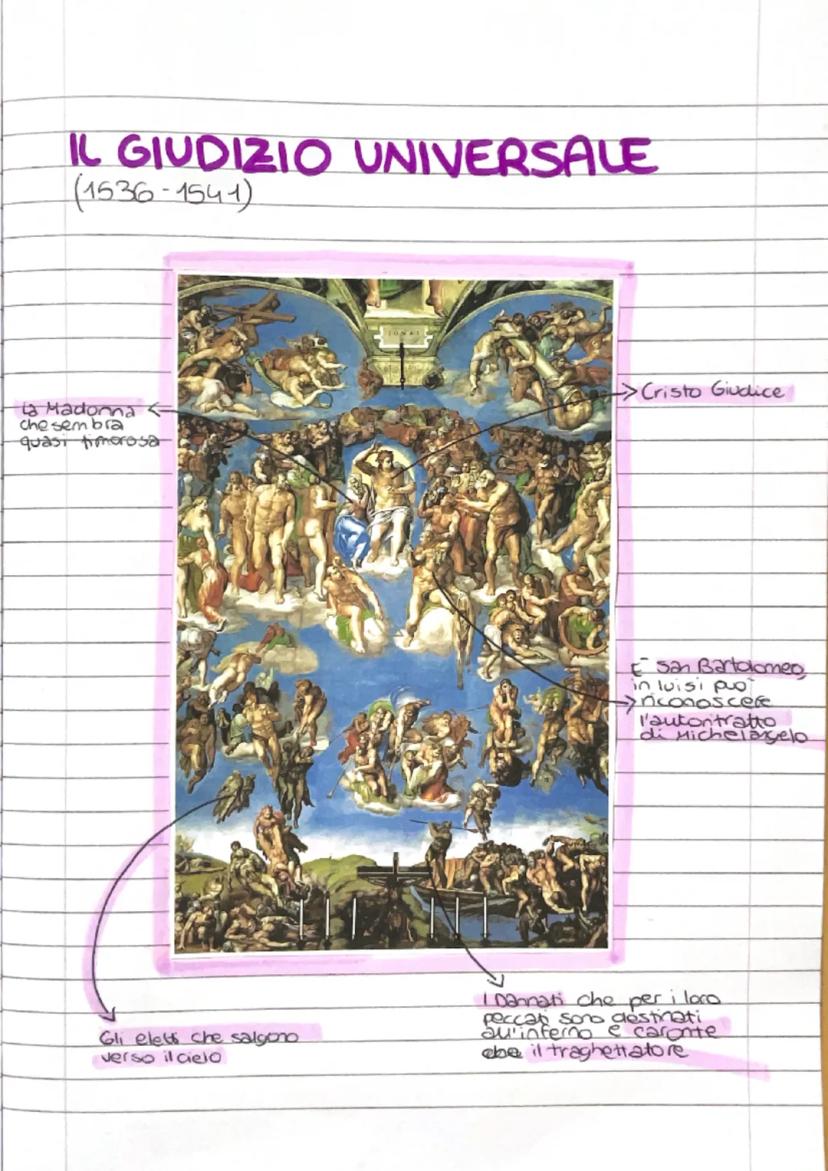 IL GIUDIZIO UNIVERSALE
(1536-1541)
IONAS
La Madonna
che sembra
quasi timorosa
Cristo Giudice
È San Bartolomeo,
in lui si può
riconoscere
l'autoritratto
di Michelangelo
Gli eletti che salgono
verso il cielo
I Dannati che per i loro
peccati sono destinati
all'inferno e caronte
il traghettatore